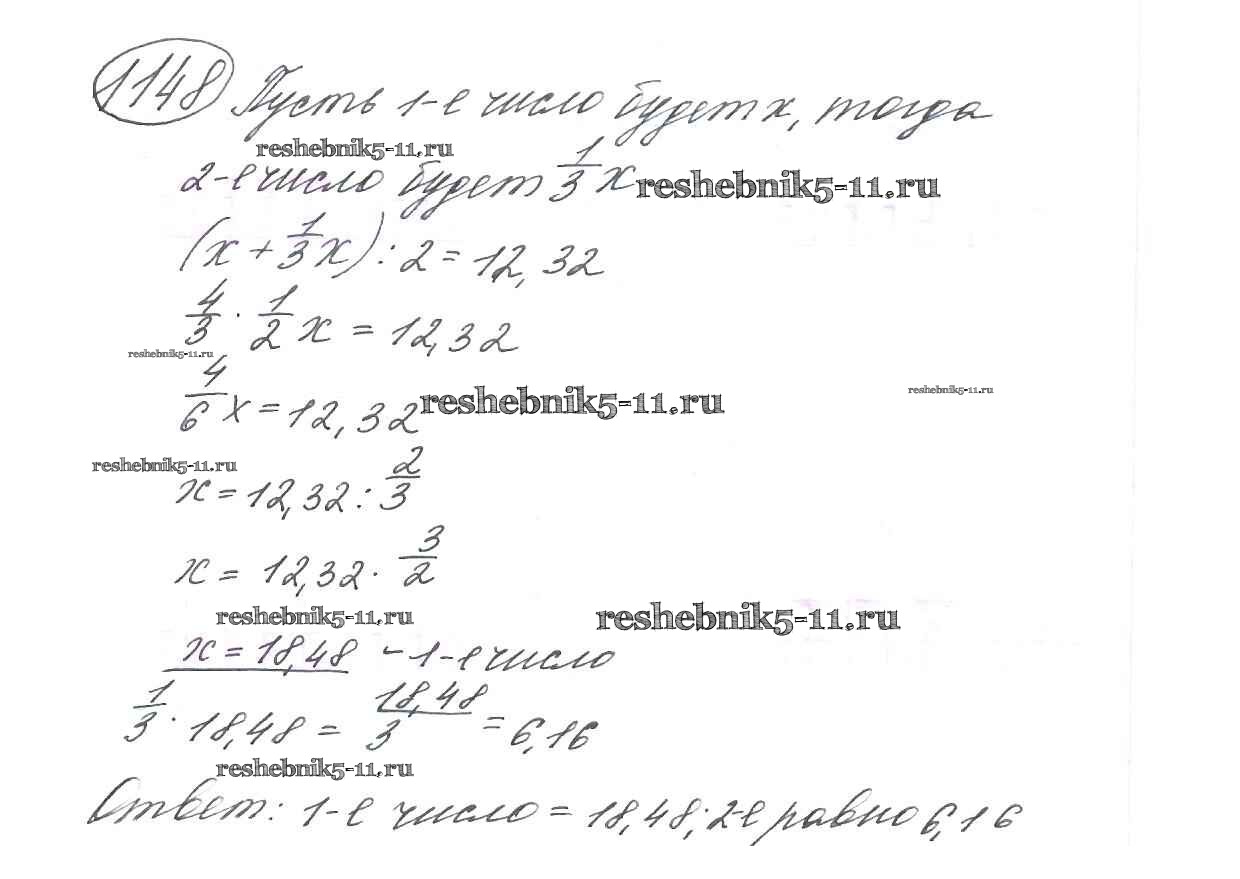 1148 Пусть 1-е число будет х, тогда
reshebnik5-11.ru
2-е число будет 1/3 х reshebnik5-11.ru
(х + 1/3 х) : 2 = 12,32
4/3 · 1/2 х = 12,32
reshebnik5-11.ru
4/6 х = 12,32 reshebnik5-11.ru
reshebnik5-11.ru
reshebnik5-11.ru
х = 12,32 : 2/3
х = 12,32 · 3/2
reshebnik5-11.ru reshebnik5-11.ru
х = 18,48 - 1-е число
1/3 · 18,48 = 18,48/3 = 6,16
reshebnik5-11.ru
Ответ: 1-е число = 18,48; 2-е равно 6,16